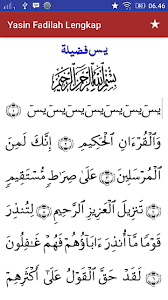 06.46
Yasin Fadilah Lengkap
يس فضيلة
بِسْمِ اللَّهِ الرَّحْمَٰنِ الرَّحِيمِ
يس يس يس يس يس يس يس ۝
وَالْقُرْءَانِ الْحَكِيمِ ۝ إِنَّكَ لَمِنَ
الْمُرْسَلِينَ ۝ عَلَىٰ صِرَاطٍ مُّسْتَقِيمٍ
۝ تَنزِيلَ الْعَزِيزِ الرَّحِيمِ ۝ لِتُنذِرَ
قَوْمًا مَّا أُنذِرَ ءَابَاؤُهُمْ فَهُمْ غَٰفِلُونَ
۝ لَقَدْ حَقَّ الْقَوْلُ عَلَىٰ أَكْثَرِهِمْ